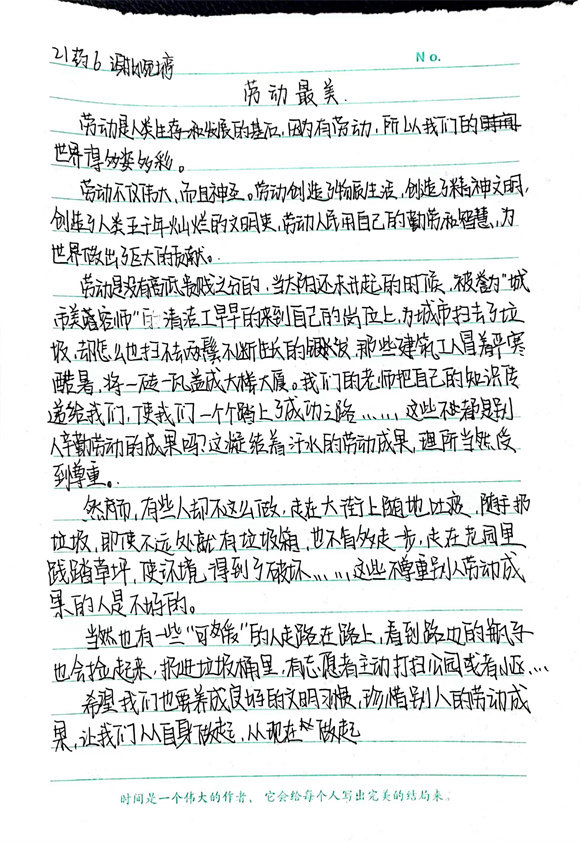 21药6 谢
No.
劳动最美
劳动是人类生存和发展的基石,因为有劳动,所以我们的
世界多姿多彩。
劳动不仅伟大,而且神圣。劳动创造了物质生活,创造了精神文明,
创造了人类五千年灿烂的文明史,劳动人民用自己的勤劳和智慧,为
世界做出了巨大的贡献。
劳动是没有高低贵贱之分的,当太阳还未升起的时候,被誉为“城
市美容师”的清洁工早早的来到自己的岗位上,为城市扫去了垃
圾,却怎么也扫不去两鬓不断生长的银发,那些建筑工人冒着严寒
酷暑,将一砖一瓦盖成大楼大厦。我们的老师把自己的知识传
递给我们,使我们一个个踏上了成功之路……,这些不都是别
人辛勤劳动的成果吗?这凝结着汗水的劳动成果,理所当然受
到尊重。
然而,有些人却不这么做,走在大街上随地吐痰,随手扔
垃圾,即使不远处就有垃圾箱,也不肯多走一步,走在花园里
践踏草坪,使环境得到了破坏……,这些不尊重别人劳动成
果的人是不好的。
当然也有一些“可爱”的人走路在路上,看到路边的瓶子
也会捡起来,扔进垃圾桶里,有志愿者主动打扫公园或者小区…
希望我们也要养成良好的文明习惯,珍惜别人的劳动成
果,让我们从自身做起,从现在做起
时间是一个伟大的作者,它会给每个人写出完美的结局来。